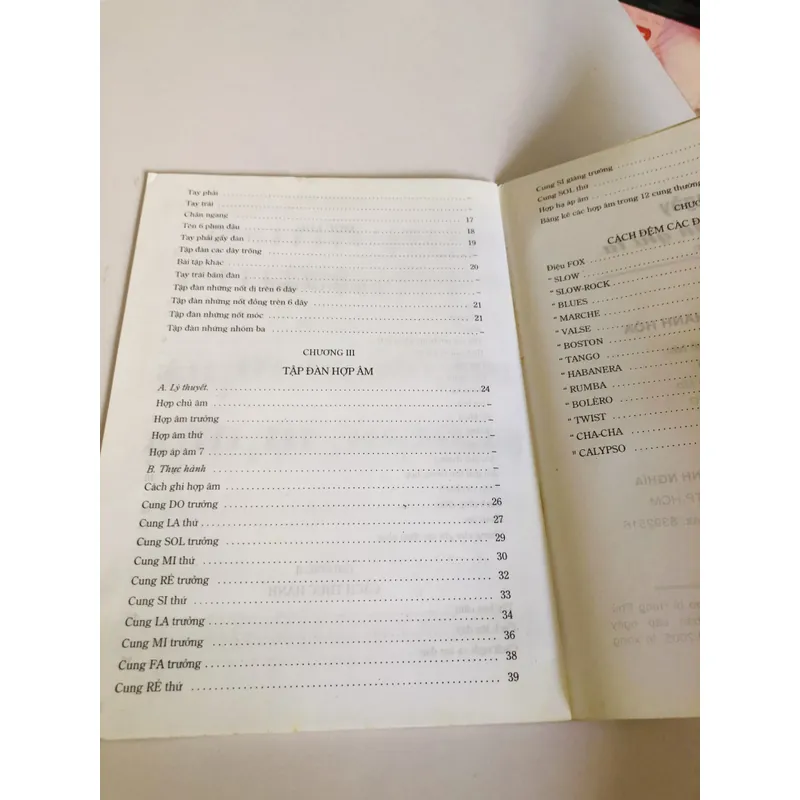 Tay phải ........ –
Tay trái ........ –
Chân ngang ........ 17
Tên 6 phím đầu ........ 18
Tay phải gẩy đàn ........ 19
Tập đàn các dây trống ........ –
Bài tập khác ........ 20
Tay trái bấm đàn ........ –
Tập đàn những nốt dị trên 6 dây ........ –
Tập đàn những nốt đồng trên 6 dây ........ 21
Tập đàn những nốt móc ........ 21
Tập đàn những nhóm ba ........ –
CHƯƠNG III
TẬP ĐÀN HỢP ÂM
A. Lý thuyết. ........ 24
Hợp chủ âm ........ –
Hợp âm trưởng ........ –
Hợp âm thứ ........ –
Hợp áp âm 7 ........ –
B. Thực hành ........ –
Cách ghi hợp âm ........ –
Cung DO trưởng ........ 26
Cung LA thứ ........ 27
Cung SOL trưởng ........ 29
Cung MI thứ ........ 30
Cung RÉ trưởng ........ 32
Cung SI thứ ........ 33
Cung LA trưởng ........ 34
Cung MI trưởng ........ 36
Cung FA trưởng ........ 38
Cung RÉ thứ ........ 39
Cung SI giáng trưởng ........
Cung SOL thứ ........
Hợp hạ áp âm ........
Bảng kê các hợp âm trong 12 cung thương
CHƯƠ
CÁCH ĐỆM CÁC Đ
Điệu FOX ........
" SLOW ........
" SLOW-ROCK ........
" BLUES ........
" MARCHE ........
" VALSE ........
" BOSTON ........
" TANGO ........
" HABANERA ........
" RUMBA ........
" BOLÉRO ........
" TWIST ........
" CHA-CHA ........
" CALYPSO ........